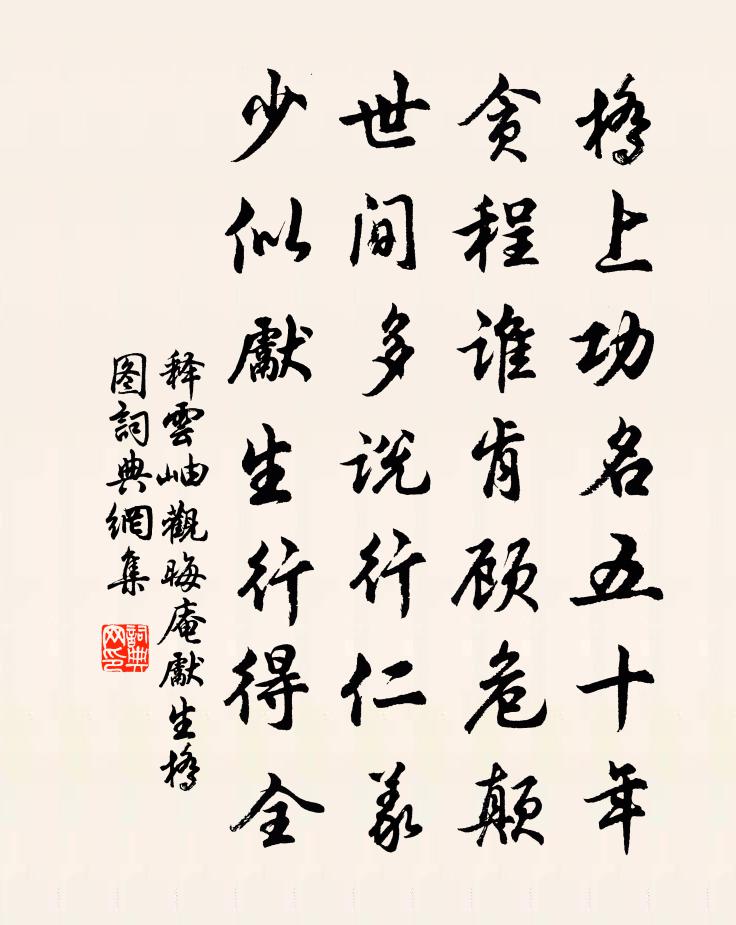 橋上功名五十年
贪程谁肯顾危颠
世间多说行仁義
少似獻生行得全
释雲岫觀晦庵獻生橋
图詞典網集
詞典
网印